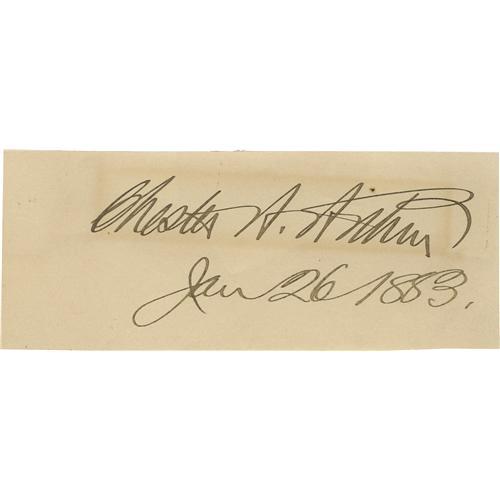 Chester A. Arthur
Jan 26 1883.